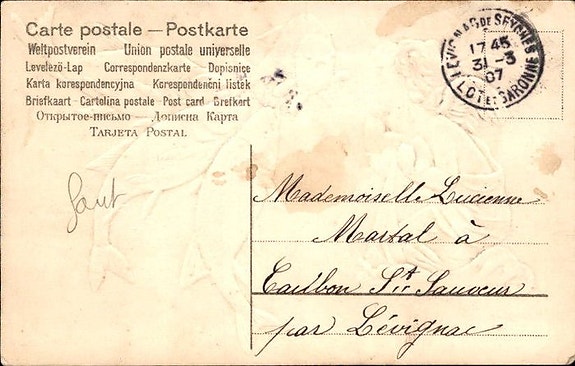 Carte postale — Postkarte
Weltpostverein — Union postale universelle
Levelező-Lap — Correspondenzkarte — Dopisnice
Karta korespondencyjna — Korespondenční lístek
Briefkaart - Cartolina postale - Post card - Brefkort
Открытое-письмо — Дописна Карта
TARJETA POSTAL
LÉVIGNAC DE SEYCHES
17 45
31 - 3
07
LOT ET GARONNE
Mademoiselle Lucienne
Martal à
Cailbon St Sauveur
par Lévignac